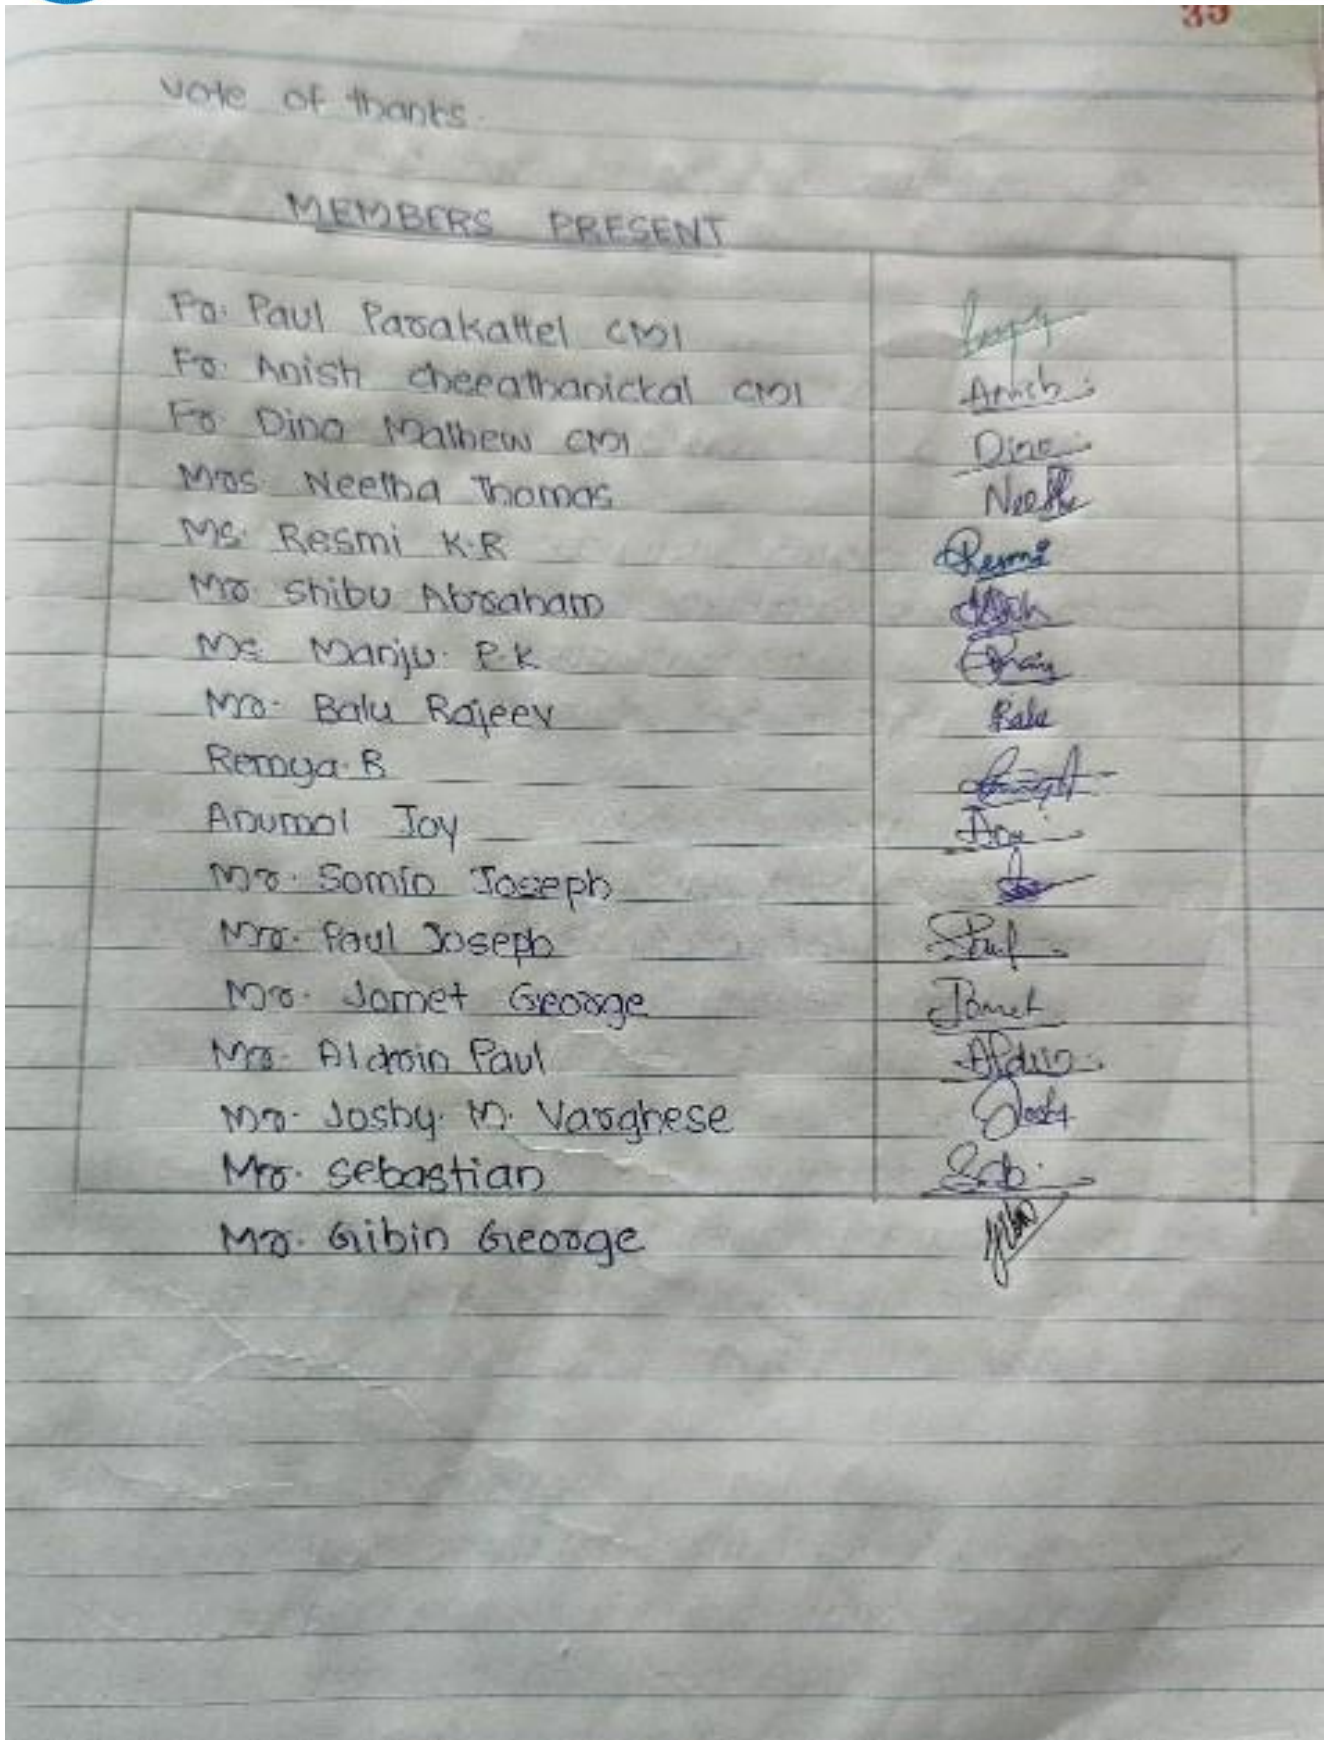 35
vote of thanks.
MEMBERS PRESENT
Fr. Paul Parakattel CMI
Fr. Anish cheeathanickal CMI Anish
Fr. Dino Mathew CMI Dino
Mrs Neetha Thomas Neetha
Ms. Resmi K.R Resmi
Mr. Shibu Abraham
Ms. Manju. P.K
Mr. Balu Rajeev Balu
Remya. R
Anumol Joy Anu
Mr. Somin Joseph
Mr. Paul Joseph Paul
Mr. Jomet George Jomet
Mr. Aldrin Paul Aldrin
Mr. Josby. M. Varghese Josby
Mr. Sebastian Seb
Mr. Gibin George Gibin